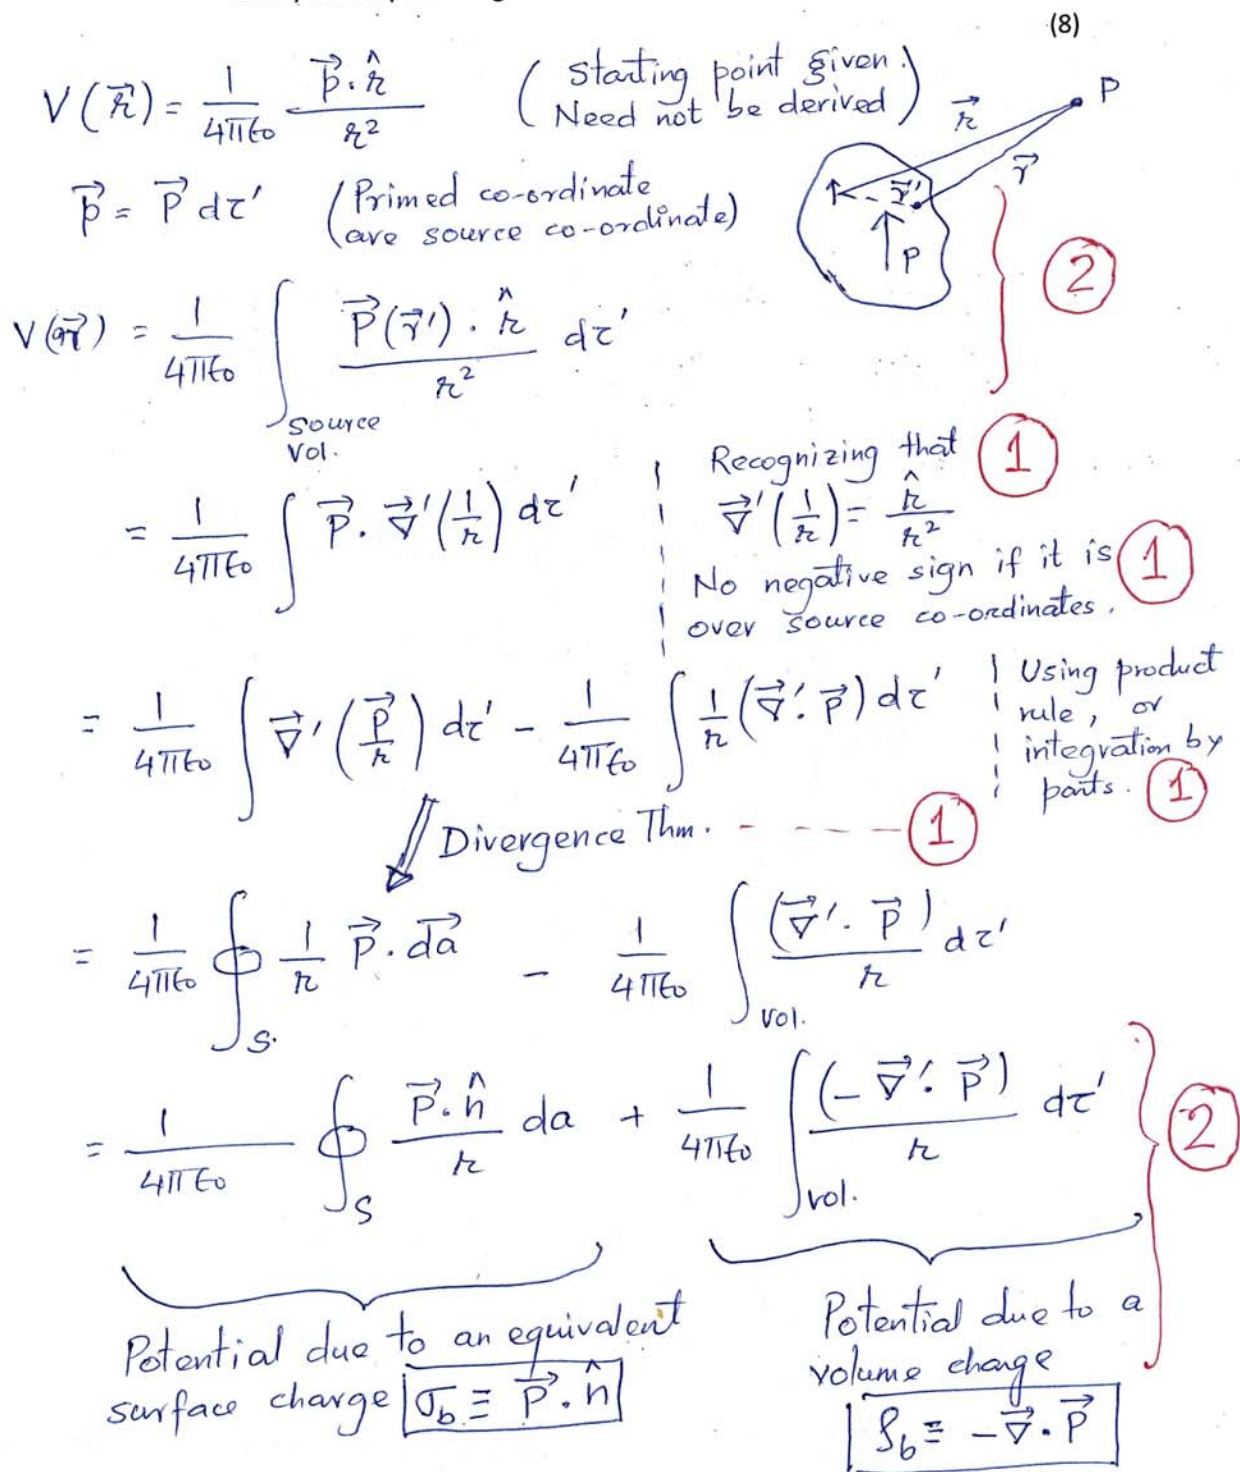 (8)
V(𝓇⃗) = 1/4πϵ₀ p⃗.𝓇̂/𝓇² (Starting point given. Need not be derived)
P
𝓇⃗
r⃗
r⃗′
P
p⃗ = P⃗ dτ′ (Primed co-ordinate are source co-ordinate)
2
V(r⃗) = 1/4πϵ₀ ∫ P⃗(r⃗′) . 𝓇̂/𝓇² dτ′
Source
Vol.
Recognizing that 1
= 1/4πϵ₀ ∫ P⃗ . ∇⃗′(1/𝓇) dτ′
∇⃗′(1/𝓇) = 𝓇̂/𝓇²
No negative sign if it is 1
over source co-ordinates.
= 1/4πϵ₀ ∫ ∇⃗′(P⃗/𝓇) dτ′ - 1/4πϵ₀ ∫ 1/𝓇 (∇⃗′. P⃗) dτ′
Using product
rule, or
integration by
parts. 1
Divergence Thm. - - - - - 1
= 1/4πϵ₀ ∮ 1/𝓇 P⃗. da⃗ - 1/4πϵ₀ ∫ (∇⃗′. P⃗)/𝓇 dτ′
S. Vol.
= 1/4πϵ₀ ∮ P⃗.n̂/𝓇 da + 1/4πϵ₀ ∫ (- ∇⃗′. P⃗)/𝓇 dτ′ 2
S vol.
Potential due to an equivalent
surface charge σb ≡ P⃗ . n̂
Potential due to a
volume charge
ρb ≡ - ∇⃗. P⃗